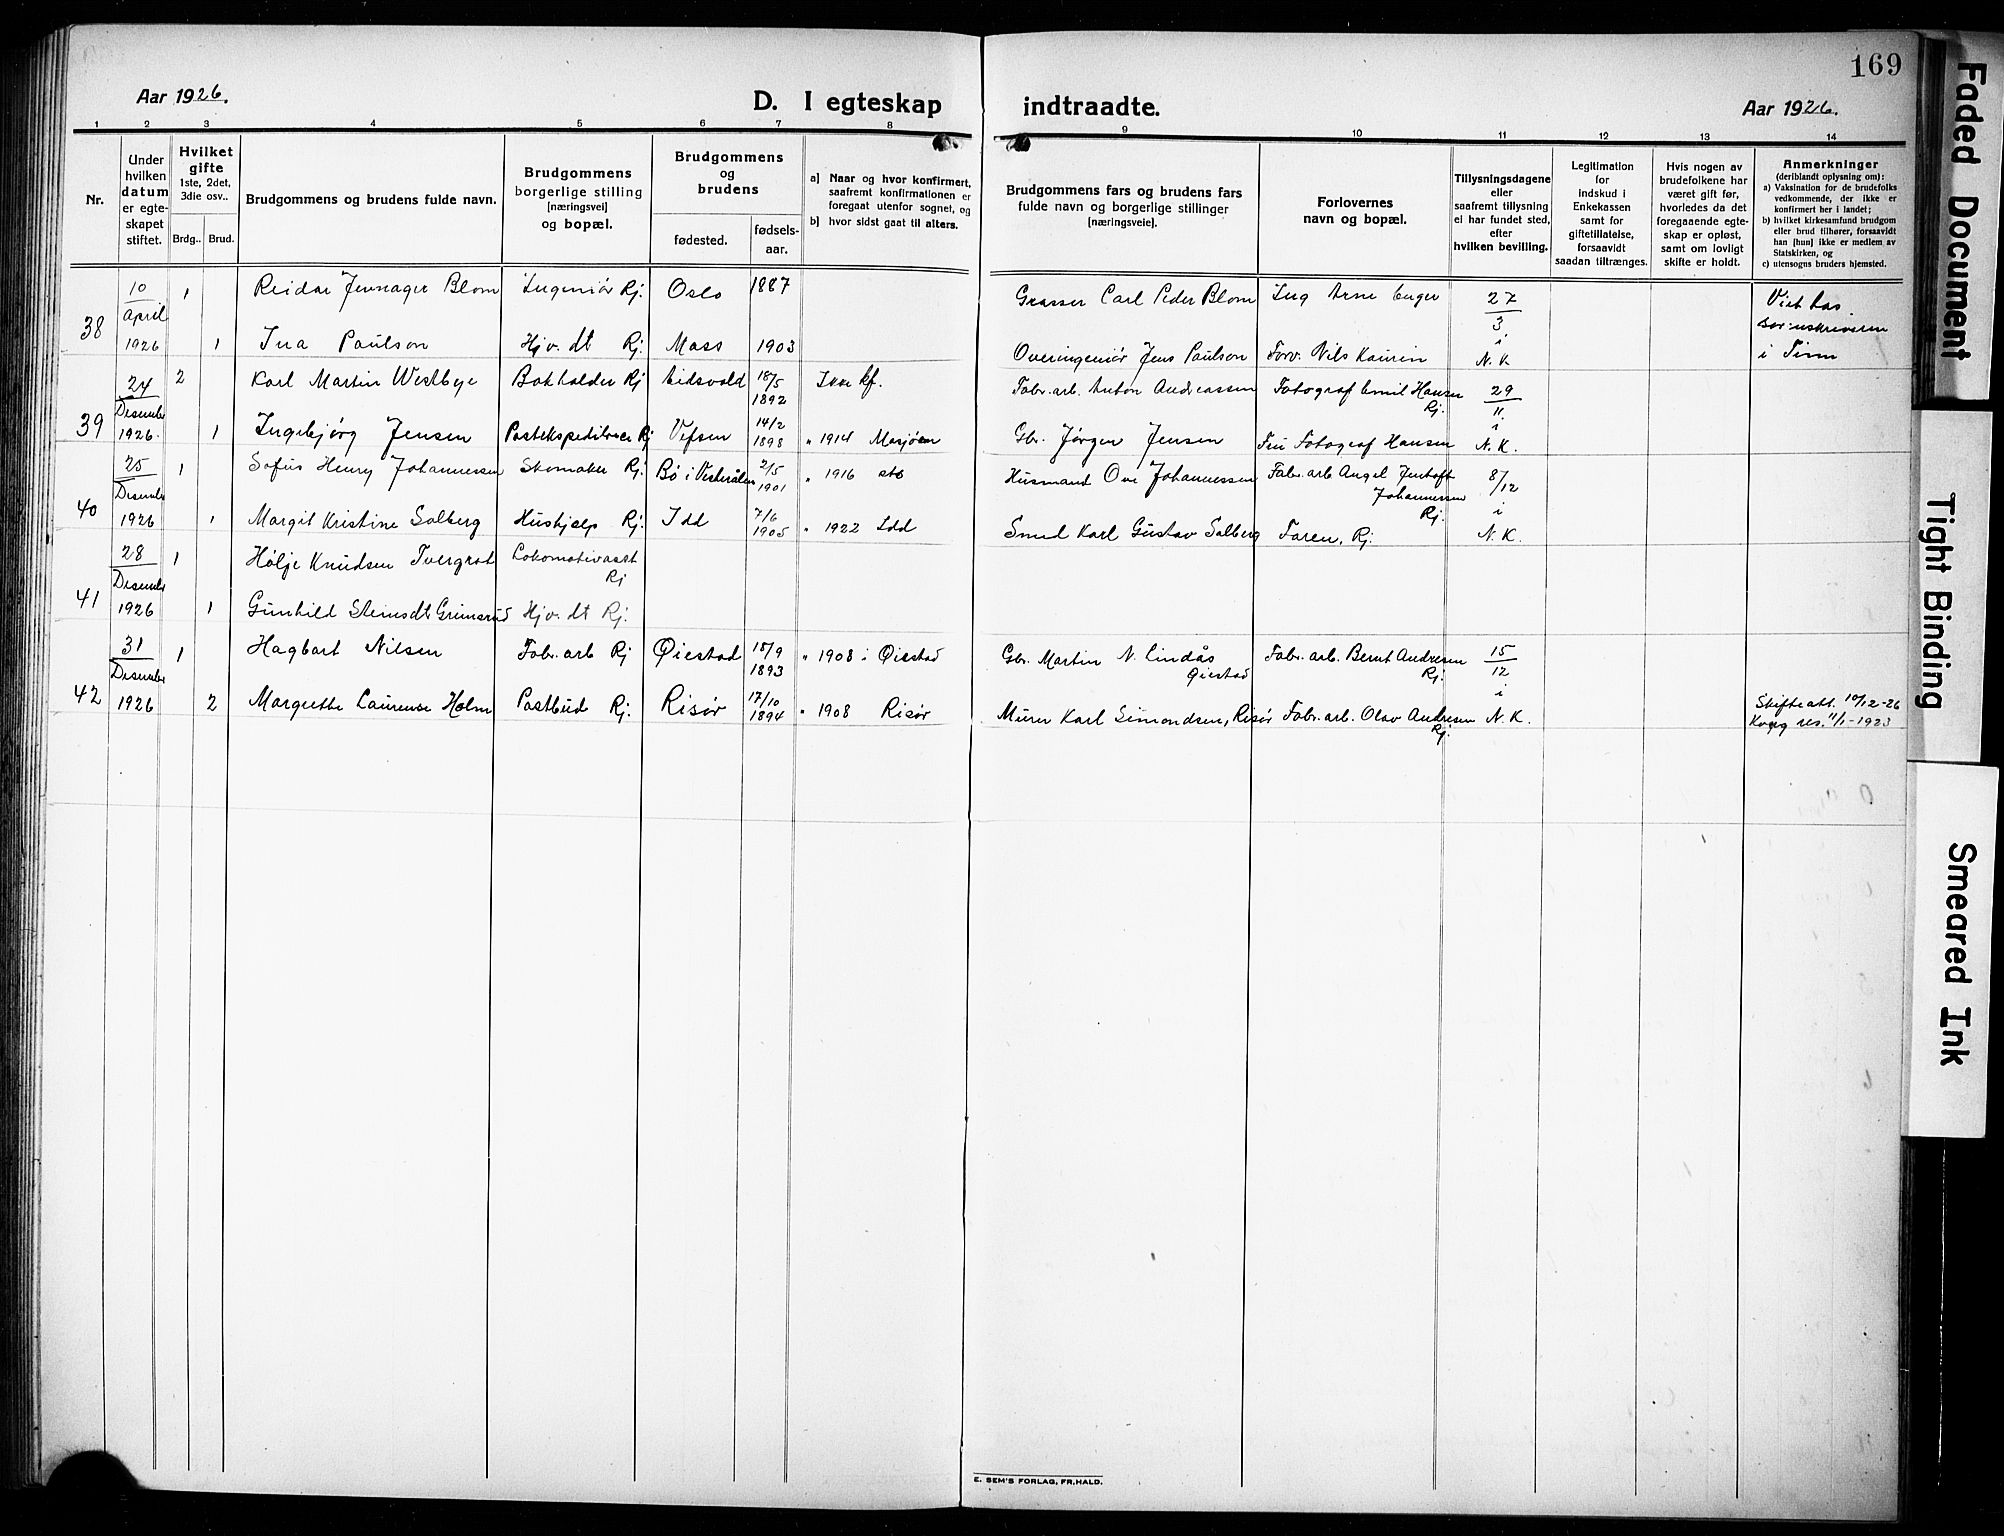 169
Aar 1926.
D. I egteskap indtraadte.
Aar 1926.
1 2 3 4 5 6 7 8 9 10 11 12 13 14
Nr.
Under
hvilken
datum
er egte-
skapet
stiftet.
Hvilket
gifte
1ste, 2det,
3die osv..
Brdg.. Brud.
Brudgommens og brudens fulde navn.
Brudgommens
borgerlige stilling
[næringsvei]
og bopæl.
Brudgommens
og
brudens
fødested.
fødsels-
aar.
a) Naar og hvor konfirmert,
saafremt konfirmationen er
foregaat utenfor sognet, og
b) hvor sidst gaat til alters.
Brudgommens fars og brudens fars
fulde navn og borgerlige stillinger
[næringsveie].
Forlovernes
navn og bopæl.
Tillysningsdagene
eller
saafremt tillysning
ei har fundet sted,
efter
hvilken bevilling.
Legitimation
for
indskud i
Enkekassen
samt for
giftetillatelse,
forsaavidt
saadan tiltrænges.
Hvis nogen av
brudefolkene har
været gift før,
hvorledes da det
foregaaende egte-
skap er opløst,
samt om lovligt
skifte er holdt.
Anmerkninger
(deriblandt oplysning om):
a) Vaksination for de brudefolks
vedkommende, der ikke er
konfirmert her i landet;
b) hvilket kirkesamfund brudgom
eller brud tilhører, forsaavidt
han [hun] ikke er medlem av
Statskirken, og
c) utensogns bruders hjemsted.
38
10
April
1926
1 Reidar Jensnager Blom Ingeniør Rj. Oslo 1887
Grosser Carl Peder Blom Ing Arne Enger
27
3
i
N.K.
Viet hos
sorenskriveren
i Tinn
1 Ina Paulson Hjv. dt Rj. Moss 1903
Overingeniør Jens Paulson Forv. Nils Kaurin
39
24
Desember
1926.
2 Karl Martin Westbye Bokholder Rj Eidsvold 18/5
1892 Ikke kf.
Fabr. arb. Anton Andreassen Fotograf Emil Hansen
Rj.
29
11.
i
N.K.
1 Ingebjørg Jensen Postekspeditrice Rj Vefsen 14/2
1898 " 1914 Mosjøen
Gbr. Jørgen Jensen Fru Fotograf Hansen
40
25
Desember
1926
1 Sofus Henry Johannessen Skomaker Rj. Bø i Vesterålen 2/5
1901 " 1916 stb
Husmand Ove Johannessen Fabr. arb Angel Jentoft
Johannessen
Rj.
8/12
i
N.K.
1 Margit Kristine Solberg Hushjelp Rj. Idd 7/6
1905 " 1922 Idd
Smed Karl Gustav Solberg Faren, Rj.
41
28
Desember
1926
1 Hølje Knudsen Tvergrot Lokomotivasst
Rj
1 Gunhild Steinsdt. Grimsrud Hjv. dt Rj.
42
31
Desember
1926
1 Hagbart Nilsen Fabr. arb Rj Øiestad 18/9
1893 " 1908 i Øiestad
Gbr. Martin N. Lindås
Øiestad
Fabr. arb. Bernt Andresen
Rj.
15
12
i
N.K.
2 Margrethe Laurense Holm Postbud Rj. Risør 17/10
1894 " 1908 Risør
Murer Karl Simondsen, Risør Fabr. arb. Olav Andresen
Rj.
Skifteatt. 10/12-26
Kong res. 11/1-1923
E. SEM'S FORLAG, FR.HALD.
Faded Document
Tight Binding
Smeared Ink